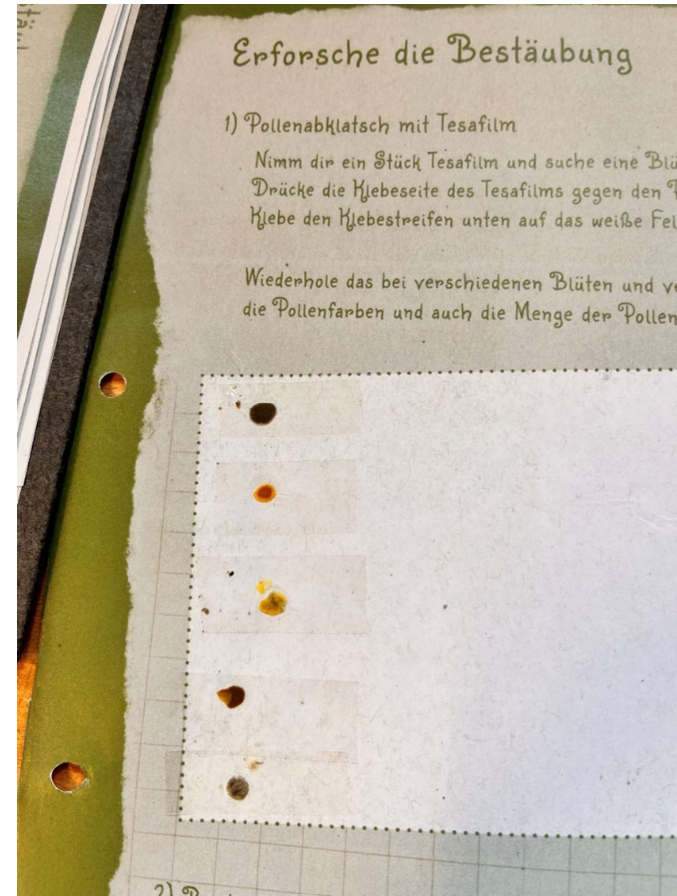 Erforsche die Bestäubung
1) Pollenabklatsch mit Tesafilm
Nimm dir ein Stück Tesafilm und suche eine Blü
Drücke die Klebeseite des Tesafilms gegen den
Klebe den Klebestreifen unten auf das weiße Fel
Wiederhole das bei verschiedenen Blüten und ve
die Pollenfarben und auch die Menge der Pollen
2)